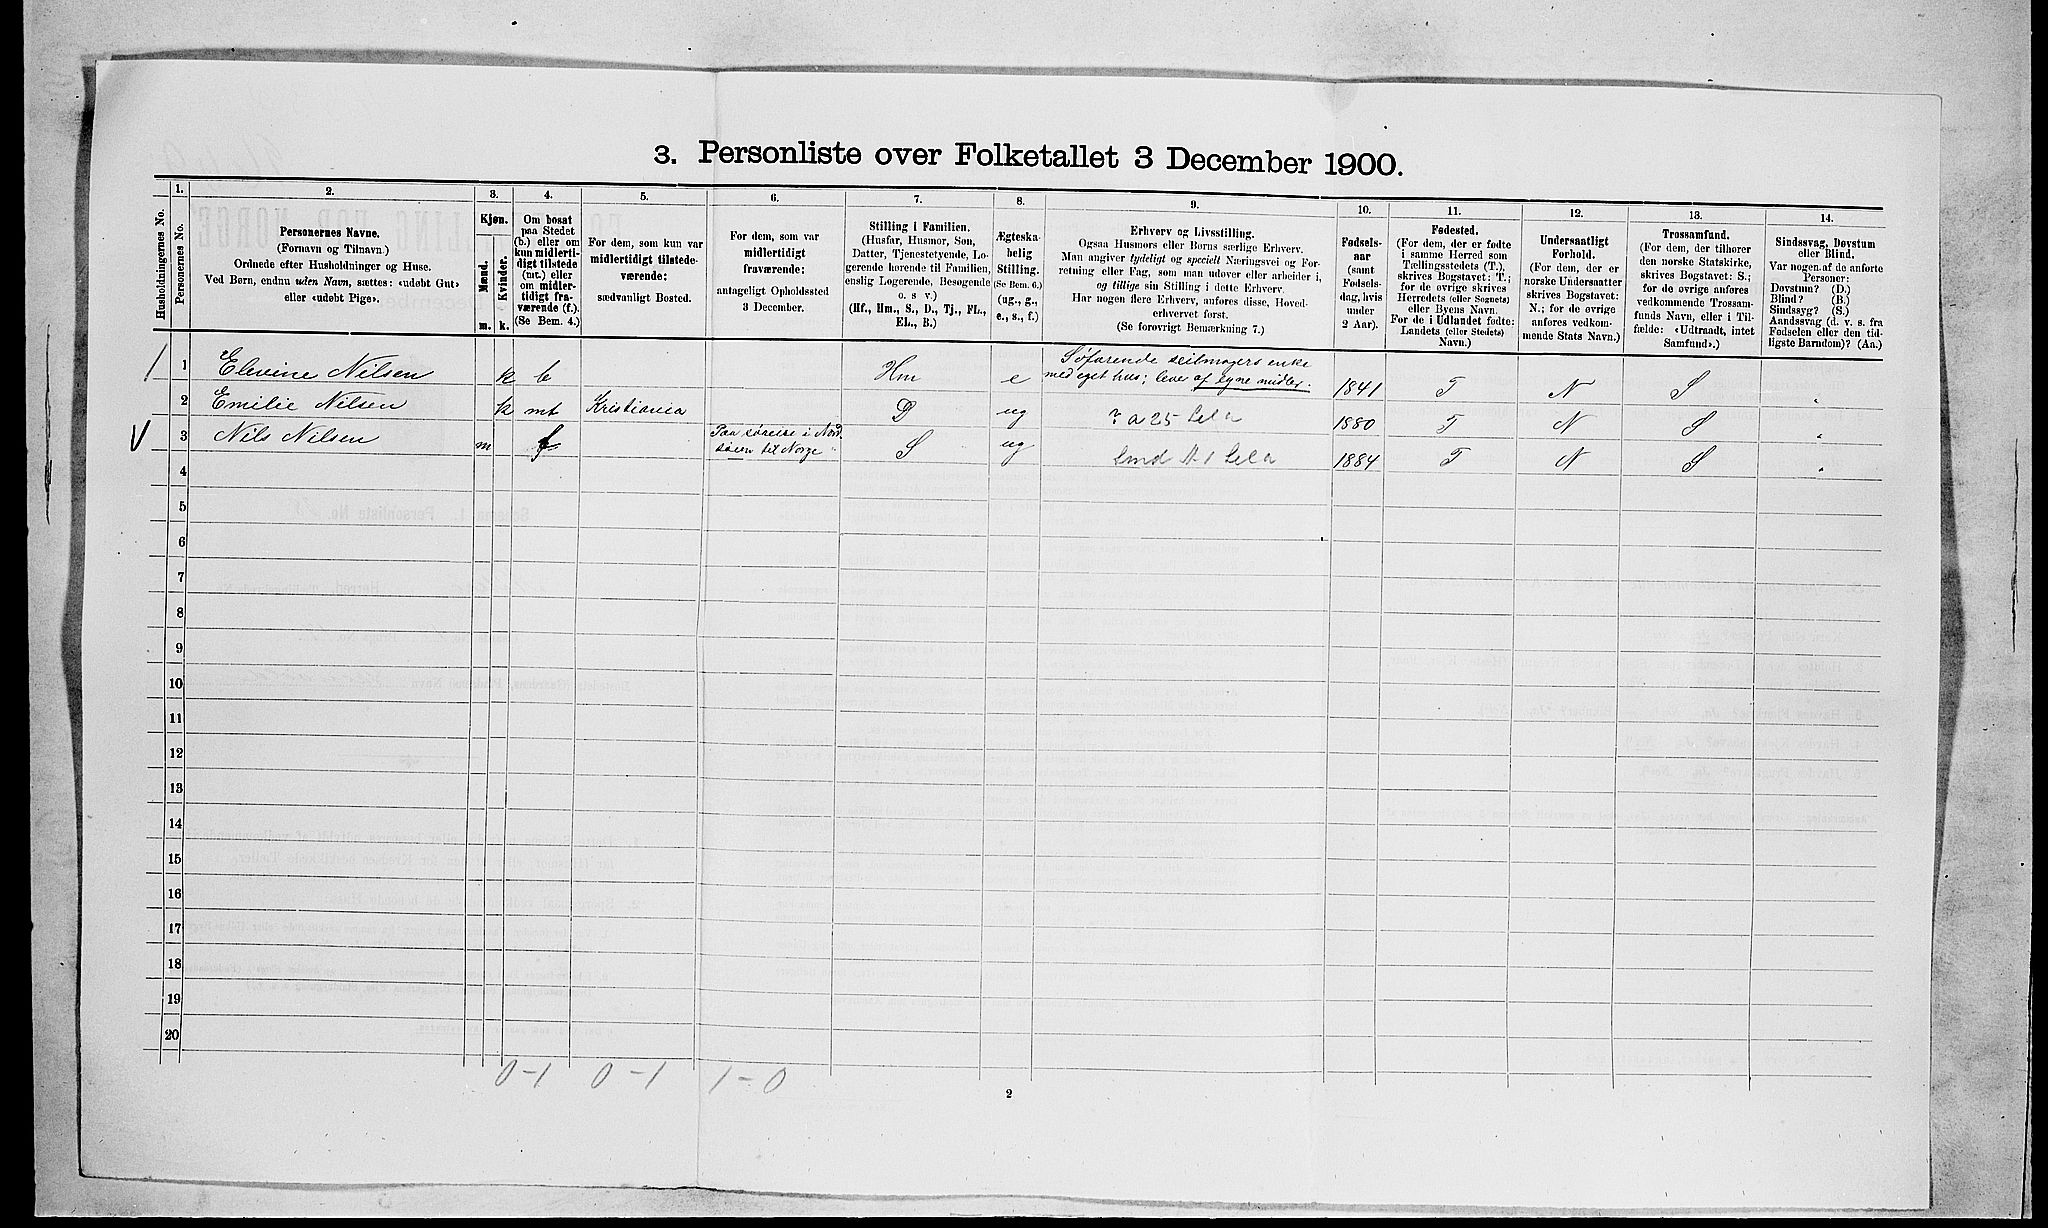 3. Personliste over Folketallet 3 December 1900.
Husholdningernes No.
1.
Personernes No.
2.
Personernes Navne.
(Fornavn og Tilnavn.)
Ordnede efter Husholdninger og Huse.
Ved Børn, endnu uden Navn, sættes: «udøbt Gut»
eller «udøbt Pige».
3.
Kjøn.
Mænd.
Kvinder.
m. k.
4.
Om bosat
paa Stedet
(b.) eller om
kun midlerti-
digt tilstede
(mt.) eller
om midler-
tidigt fra-
værende (f.).
(Se Bem. 4.)
5.
For dem, som kun var
midlertidigt tilstede-
værende:
sædvanligt Bosted.
6.
For dem, som var
midlertidigt
fraværende:
antageligt Opholdssted
3 December.
7.
Stilling i Familien.
(Husfar, Husmor, Søn,
Datter, Tjenestetyende, Lo-
gerende hørende til Familien,
enslig Logerende, Besøgende
o. s v.)
(Hf., Hm., S., D., Tj., FL.,
EL., B.)
8.
Ægteska-
belig
Stilling.
(Se Bem. 6.)
(ug., g.,
e., s., f.)
9.
Erhverv og Livsstilling.
Ogsaa Husmors eller Børns særlige Erhverv.
Man angiver tydeligt og specielt Næringsvei og For-
retning eller Fag, som man udøver eller arbeider i,
og tillige sin Stilling i dette Erhverv.
Har nogen flere Erhverv, anføres disse, Hoved-
erhvervet først.
(Se forøvrigt Bemærkning 7.)
10.
Fødsels-
aar
(samt
Fødsels-
dag, hvis
under
2 Aar).
11.
Fødested.
(For dem, der er fødte
i samme Herred som
Tællingsstedets (T.),
skrives Bogstavet: T.;
for de øvrige skrives
Herredets (eller Sognets)
eller Byens Navn.
For de i Udlandet fødte:
Landets (eller Stedets)
Navn.)
12.
Undersaatligt
Forhold.
(For dem, der er
norske Undersaatter
skrives Bogstavet:
N.; for de øvrige
anføres vedkom-
mende Stats Navn.)
13.
Trossamfund.
(For dem, der tilhører
den norske Statskirke,
skrives Bogstavet: S.;
for de øvrige anføres
vedkommende Trossam-
funds Navn, eller i Til-
fælde: «Udtraadt, intet
Samfund».)
14.
Sindssvag, Døvstum
eller Blind.
Var nogen af de anførte
Personer:
Døvstum? (D.)
Blind? (B.)
Sindssyg? (S.)
Aandssvag (d. v. s. fra
Fødselen eller den tid-
ligste Barndom)? (Aa.)
1 Elevine Nilsen k b Hm e Søfarende seilmagers enke
med eget hus; leve af egne midler. 1841 T N S
2 Emilie Nilsen k mt Kristiania D ug 1880 T N S
3 Nils Nilsen m f Paa søreise i Nord
søen til Norge S ug 1884 T N S
4
5
6
7
8
9
10
11
12
13
14
15
16
17
18
19
20
0-1 0-1 1-0
2